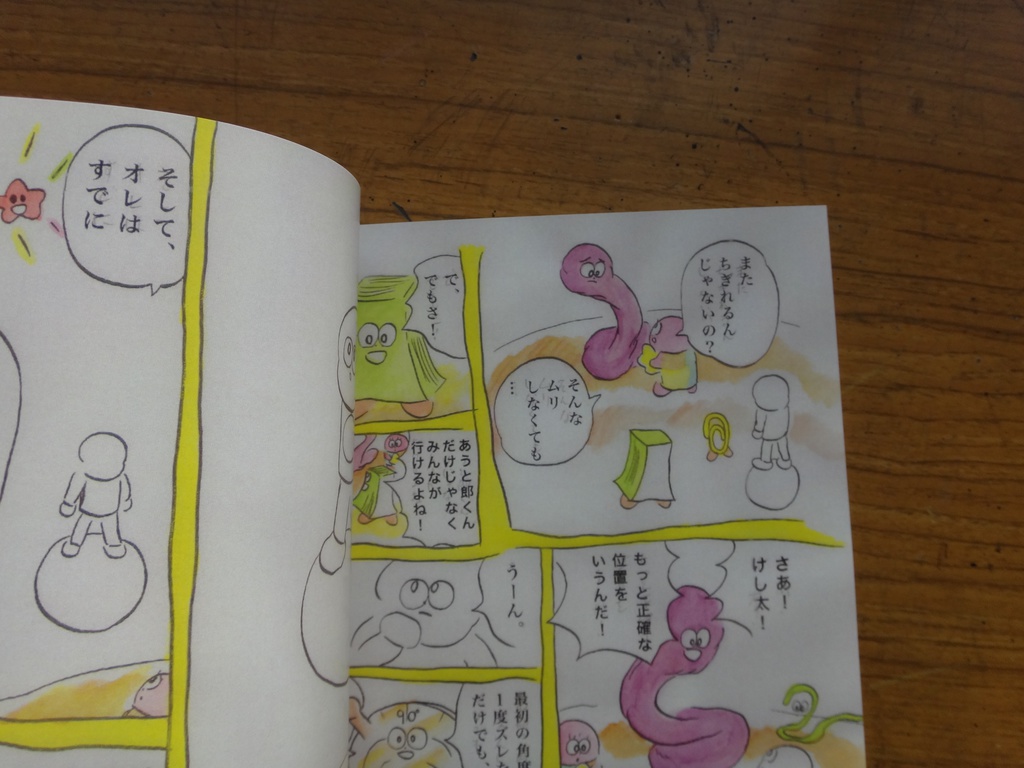 また
ちぎれるん
じゃないの?
そんな
ムリ
しなくても
…
で、
でもさ!
あうと郎くん
だけじゃなく
みんなが
行けるよね!
さあ!
けし太!
もっと正確な
位置を
いうんだ!
うーん。
90°
最初の角度
1度ズレた
だけでも、
そして、
オレは
すでに